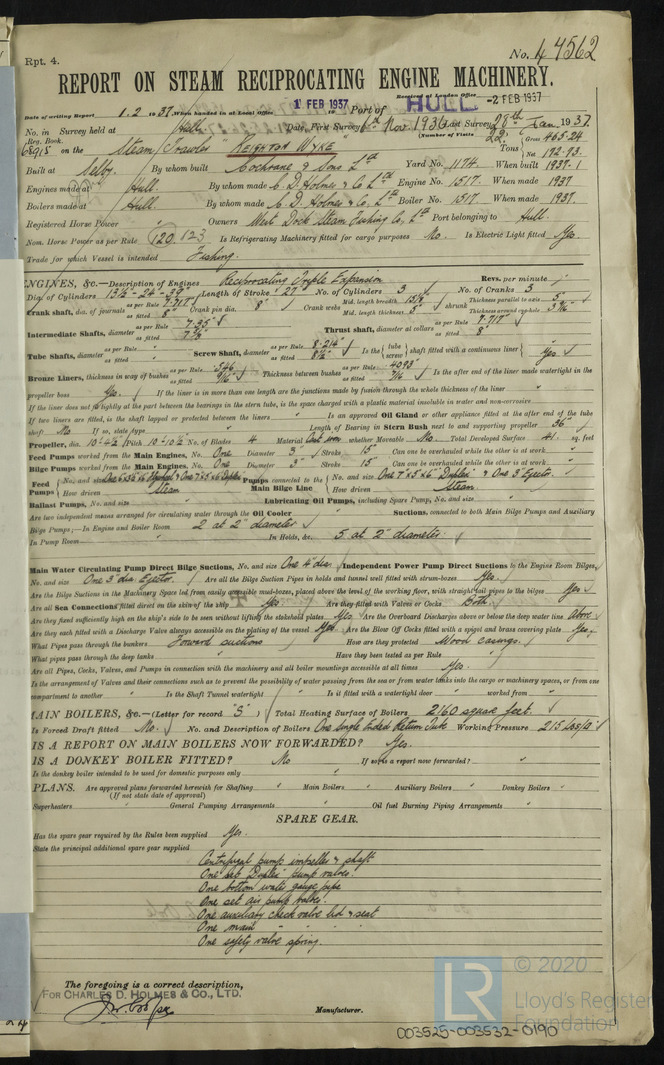 Rpt. 4.
No. 44562
REPORT ON STEAM RECIPROCATING ENGINE MACHINERY.
Received at London Office -2 FEB 1937
Date of writing Report 1.2.1937. When handed in at Local Office 1 FEB 1937 Port of HULL
No. in Survey held at Hull Date, First Survey 6th Nov 1936 Last Survey 28th Jan 1937
Reg. Book. (Number of Visits 22)
68918 on the Steam Trawler "KEIGHTON WYKE" Tons Gross 465.24 Net 192.93
Built at Selby. By whom built Cochrane & Sons Ltd Yard No. 1174. When built 1937-1
Engines made at Hull. By whom made C. D. Holmes & Co. Ltd Engine No. 1517. When made 1937
Boilers made at Hull. By whom made C. D. Holmes & Co. Ltd Boiler No. 1517. When made 1937.
Registered Horse Power " Owners West Dock Steam Fishing Co. Ltd Port belonging to Hull.
Nom. Horse Power as per Rule 120. 123 Is Refrigerating Machinery fitted for cargo purposes No. Is Electric Light fitted Yes.
Trade for which Vessel is intended Fishing.
ENGINES, &c.—Description of Engines Reciprocating Triple Expansion Revs. per minute
Dia. of Cylinders 13½"-24"-39" Length of Stroke 27" No. of Cylinders 3 No. of Cranks 3
Crank shaft, dia. of journals as per Rule 7.717" as fitted 8" Crank pin dia. 8" Crank webs Mid. length breadth 15⅛ Mid. length thickness 5" shrunk Thickness parallel to axis 5" Thickness around eyehole 3 9/16"
Intermediate Shafts, diameter as per Rule 7.35" as fitted 7⅝" Thrust shaft, diameter at collars as per Rule 7.717" as fitted 8"
Tube Shafts, diameter as per Rule " as fitted " Screw Shaft, diameter as per Rule 8.214" as fitted 8½" Is the tube screw shaft fitted with a continuous liner Yes
Bronze Liners, thickness in way of bushes as per Rule .546 as fitted 9/16" Thickness between bushes as per Rule .4095 as fitted 7/16" Is the after end of the liner made watertight in the
propeller boss Yes. If the liner is in more than one length are the junctions made by fusion through the whole thickness of the liner "
If the liner does not fit tightly at the part between the bearings in the stern tube, is the space charged with a plastic material insoluble in water and non-corrosive "
If two liners are fitted, is the shaft lapped or protected between the liners " Is an approved Oil Gland or other appliance fitted at the after end of the tube
shaft No If so, state type " Length of Bearing in Stern Bush next to and supporting propeller 36"
Propeller, dia. 10'-4½" Pitch 10'-10½" No. of Blades 4 Material Cast iron whether Moveable No. Total Developed Surface 41 sq. feet
Feed Pumps worked from the Main Engines, No. One Diameter 3" Stroke 15" Can one be overhauled while the other is at work "
Bilge Pumps worked from the Main Engines, No. One Diameter 3" Stroke 15" Can one be overhauled while the other is at work "
Feed Pumps No. and size How driven Steam Pumps connected to the Main Bilge Line No. and size One 7"x5"x6" Duplex & One 3" Ejector. How driven Steam.
Ballast Pumps, No. and size " Lubricating Oil Pumps, including Spare Pump, No. and size "
Are two independent means arranged for circulating water through the Oil Cooler " Suctions, connected to both Main Bilge Pumps and Auxiliary
Bilge Pumps;—In Engine and Boiler Room 2 at 2" diameter
In Pump Room " In Holds, &c. 5 at 2" diameter.
Main Water Circulating Pump Direct Bilge Suctions, No. and size One 4" dia. Independent Power Pump Direct Suctions to the Engine Room Bilges,
No. and size One 3" dia. Ejector. Are all the Bilge Suction Pipes in holds and tunnel well fitted with strum-boxes Yes.
Are the Bilge Suctions in the Machinery Space led from easily accessible mud-boxes, placed above the level of the working floor, with straight tail pipes to the bilges Yes
Are all Sea Connections fitted direct on the skin of the ship Yes Are they fitted with Valves or Cocks Both.
Are they fixed sufficiently high on the ship's side to be seen without lifting the stokehold plates Yes Are the Overboard Discharges above or below the deep water line Above
Are they each fitted with a Discharge Valve always accessible on the plating of the vessel Yes. Are the Blow Off Cocks fitted with a spigot and brass covering plate Yes.
What Pipes pass through the bunkers Forward suctions How are they protected Wood Casings.
What pipes pass through the deep tanks " Have they been tested as per Rule "
Are all Pipes, Cocks, Valves, and Pumps in connection with the machinery and all boiler mountings accessible at all times Yes.
Is the arrangement of Valves and their connections such as to prevent the possibility of water passing from the sea or from water tanks into the cargo or machinery spaces, or from one
compartment to another " Is the Shaft Tunnel watertight " Is it fitted with a watertight door " worked from "
MAIN BOILERS, &c.—(Letter for record "S") Total Heating Surface of Boilers 2160 square feet.
Is Forced Draft fitted No. No. and Description of Boilers One Single Ended Return Tube Working Pressure 215 Lbs/□"
IS A REPORT ON MAIN BOILERS NOW FORWARDED? Yes.
IS A DONKEY BOILER FITTED? No If so, is a report now forwarded? "
Is the donkey boiler intended to be used for domestic purposes only "
PLANS. Are approved plans forwarded herewith for Shafting " Main Boilers " Auxiliary Boilers " Donkey Boilers "
(If not state date of approval)
Superheaters " General Pumping Arrangements " Oil fuel Burning Piping Arrangements "
SPARE GEAR.
Has the spare gear required by the Rules been supplied Yes.
State the principal additional spare gear supplied
Centrifugal pump impeller & shaft
One set Duplex pump valves.
One bottom water gauge pipe
One set air pump valves.
One auxiliary check valve lid & seat
One main " " "
One safety valve spring.
The foregoing is a correct description,
FOR CHARLES D. HOLMES & CO., LTD.
Manufacturer.
LR © 2020
Lloyd's Register
Foundation
003525-003532-0190